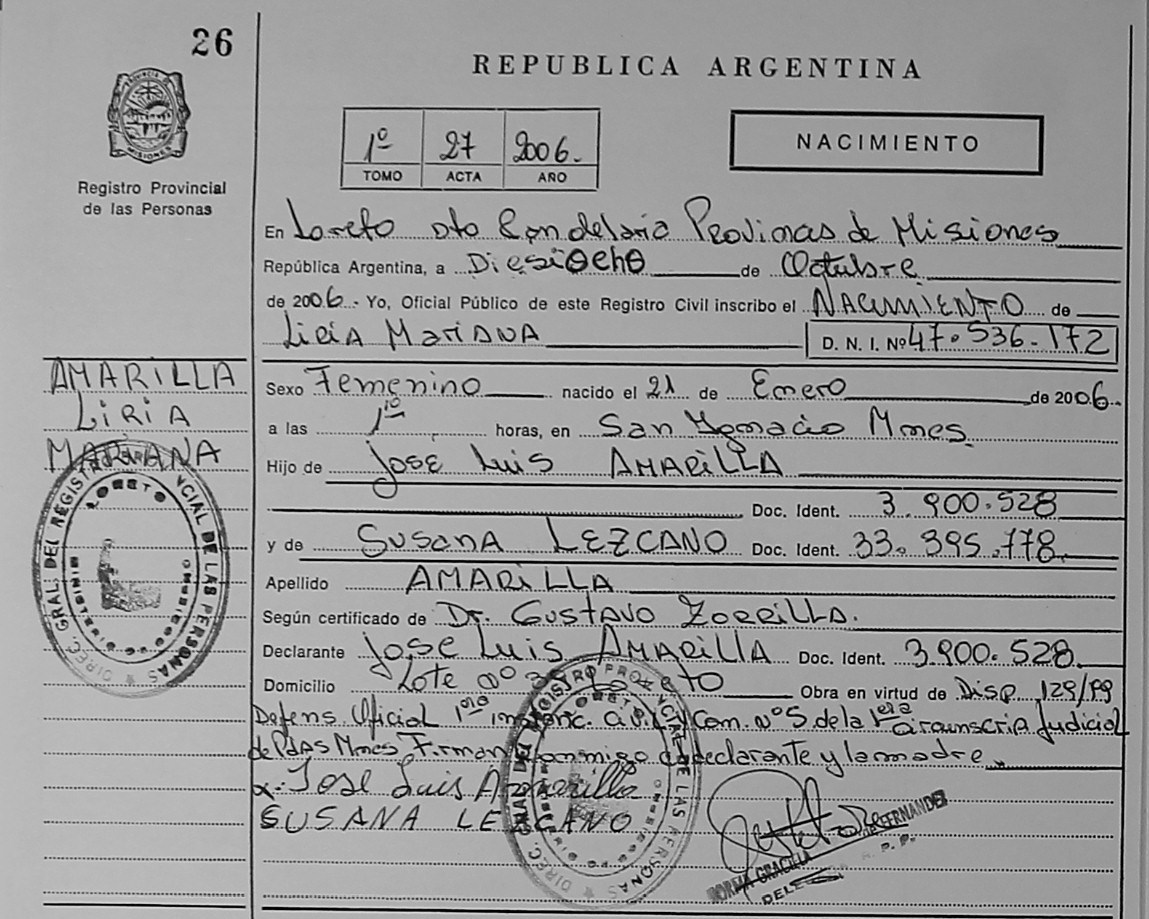 26
REPUBLICA ARGENTINA
PROVINCIA DE
MISIONES
Registro Provincial
de las Personas
1º 27 2006.
TOMO ACTA AÑO
NACIMIENTO
En Loreto Dto Candelaria Provincias de Misiones
República Argentina, a Diesiocho de Octubre
de 2006. Yo, Oficial Público de este Registro Civil inscribo el NACIMIENTO de
Liria Mariana D. N. I. Nº 47.536.172
AMARILLA
LIRIA
MARIANA
Sexo Femenino nacido el 21 de Enero de 2006.
a las 1 10 horas, en San Ygnacio Mnes.
Hijo de Jose Luis AMARILLA
Doc. Ident. 3.900.528
y de SUSANA LEZCANO Doc. Ident. 33.395.778
Apellido AMARILLA
Según certificado de Dr. Gustavo Zorrilla.
Declarante Jose Luis AMARILLA Doc. Ident. 3.900.528.
Domicilio Lote nº Obra en virtud de Disp. 129/99
Defens. Oficial 1era Com. nº 5 de la 1era Judicial
de Pdas Mnes. Firman conmigo declarante y la madre.
x. Jose Luis Amarilla
SUSANA LEZCANO
DIREC. GRAL. DEL REGISTRO PROVINCIAL DE LAS PERSONAS
LORETO
MISIONES
DIREC. GRAL. DEL REGISTRO PROVINCIAL DE LAS PERSONAS
LORETO
NORMA GRACIELA DE FERNANDEZ